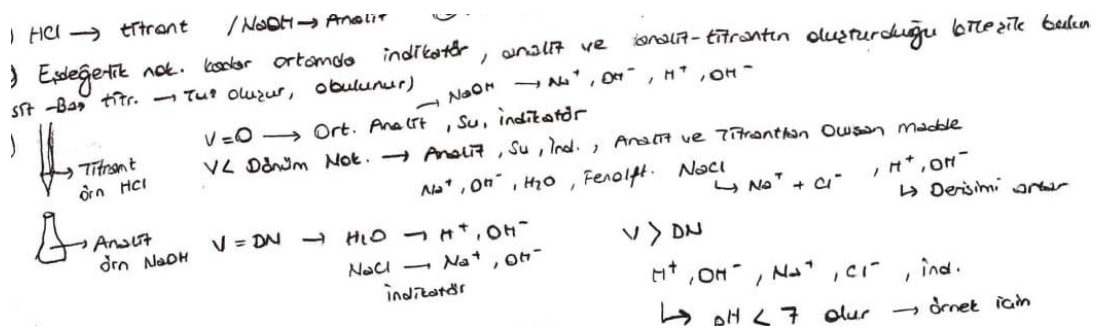 ) HCl → titrant / NaOH → Analit
) Eşdeğerlik nok. kadar ortamda indikatör, analit ve analit-titrantın oluşturduğu bileşik
Asit-Baz titr. → Tuz oluşur, obulunur)
→ NaOH → Na⁺, OH⁻, H⁺, OH⁻
)
V=0 → Ort. Analit, Su, indikatör
→ Titrant
örn HCl
V< Dönüm Nok. → Analit, Su, ind., Analit ve Titranttan Oluşan madde
Na⁺, OH⁻, H₂O, Fenolft. NaCl
↳ Na⁺ + Cl⁻, H⁺, OH⁻
↳ Derişimi artar
→ Analit
örn NaOH
V = DN → H₂O → H⁺, OH⁻
NaCl → Na⁺, OH⁻
indikatör
V > DN
H⁺, OH⁻, Na⁺, Cl⁻, ind.
↳ pH < 7 olur → örnek için